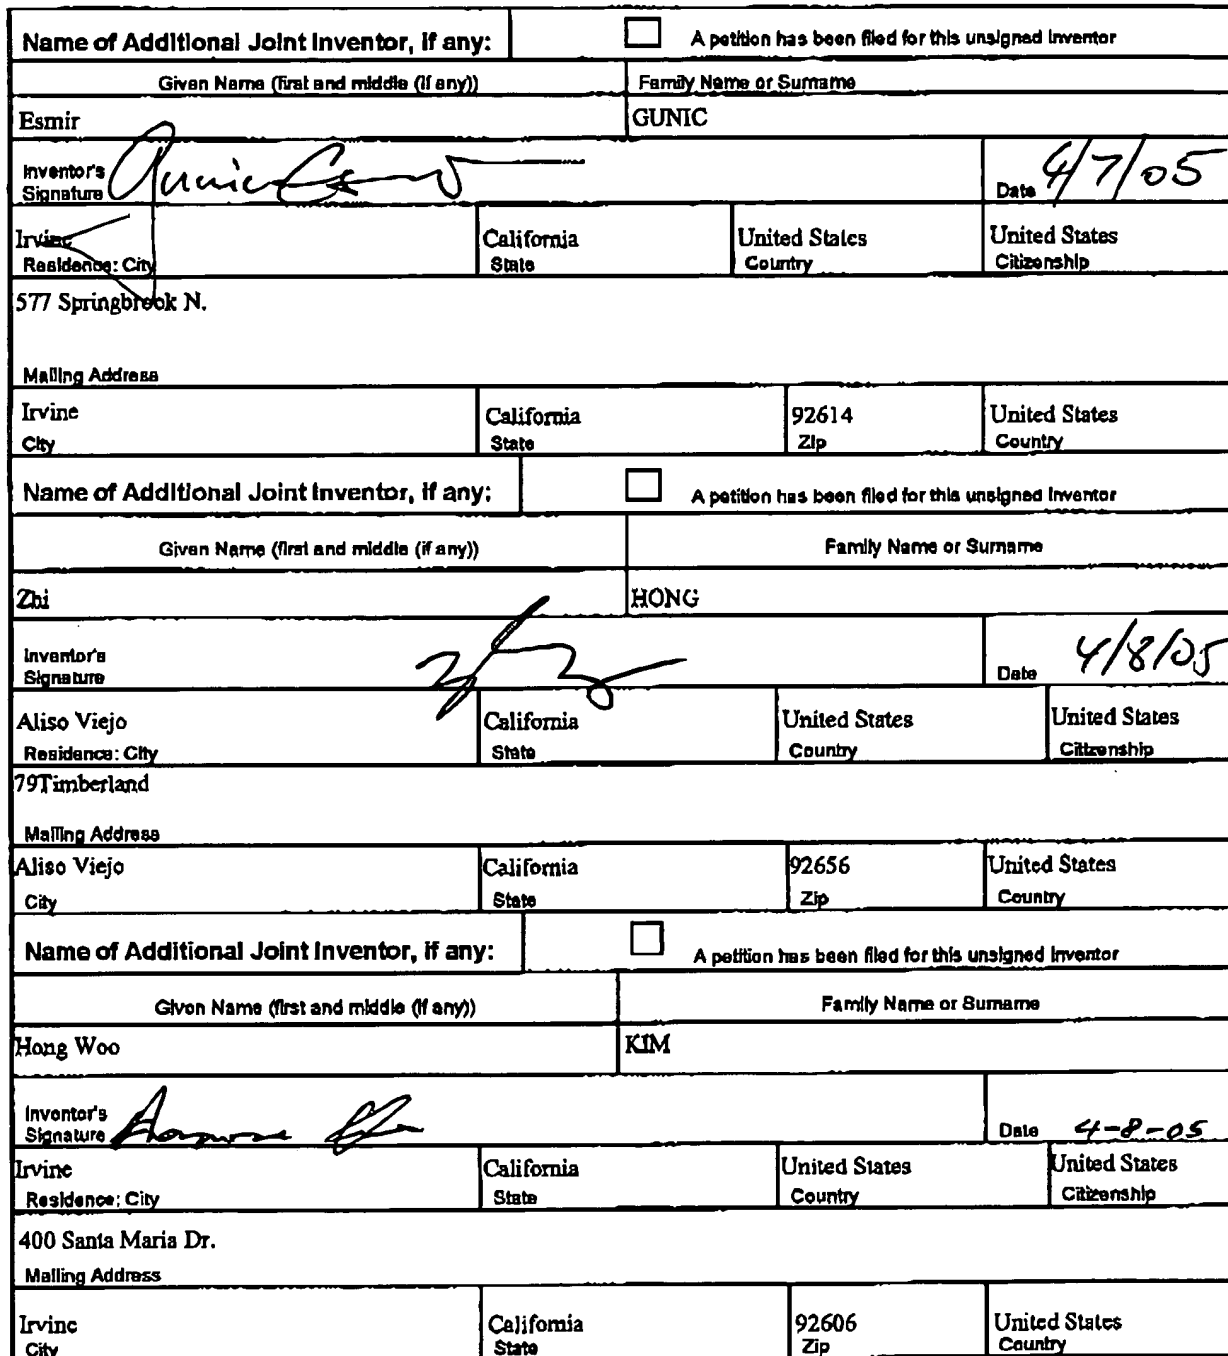 Name of Additional Joint Inventor, if any: A petition has been filed for this unsigned inventor
Given Name (first and middle (if any)) Family Name or Surname
Esmir GUNIC
Inventor's
Signature Date 4/7/05
Irvine California United States United States
Residence: City State Country Citizenship
577 Springbrook N.
Mailing Address
Irvine California 92614 United States
City State Zip Country
Name of Additional Joint Inventor, if any: A petition has been filed for this unsigned inventor
Given Name (first and middle (if any)) Family Name or Surname
Zhi HONG
Inventor's
Signature Date 4/8/05
Aliso Viejo California United States United States
Residence: City State Country Citizenship
79Timberland
Mailing Address
Aliso Viejo California 92656 United States
City State Zip Country
Name of Additional Joint Inventor, if any: A petition has been filed for this unsigned inventor
Given Name (first and middle (if any)) Family Name or Surname
Hong Woo KIM
Inventor's
Signature Date 4-8-05
Irvine California United States United States
Residence: City State Country Citizenship
400 Santa Maria Dr.
Mailing Address
Irvine California 92606 United States
City State Zip Country